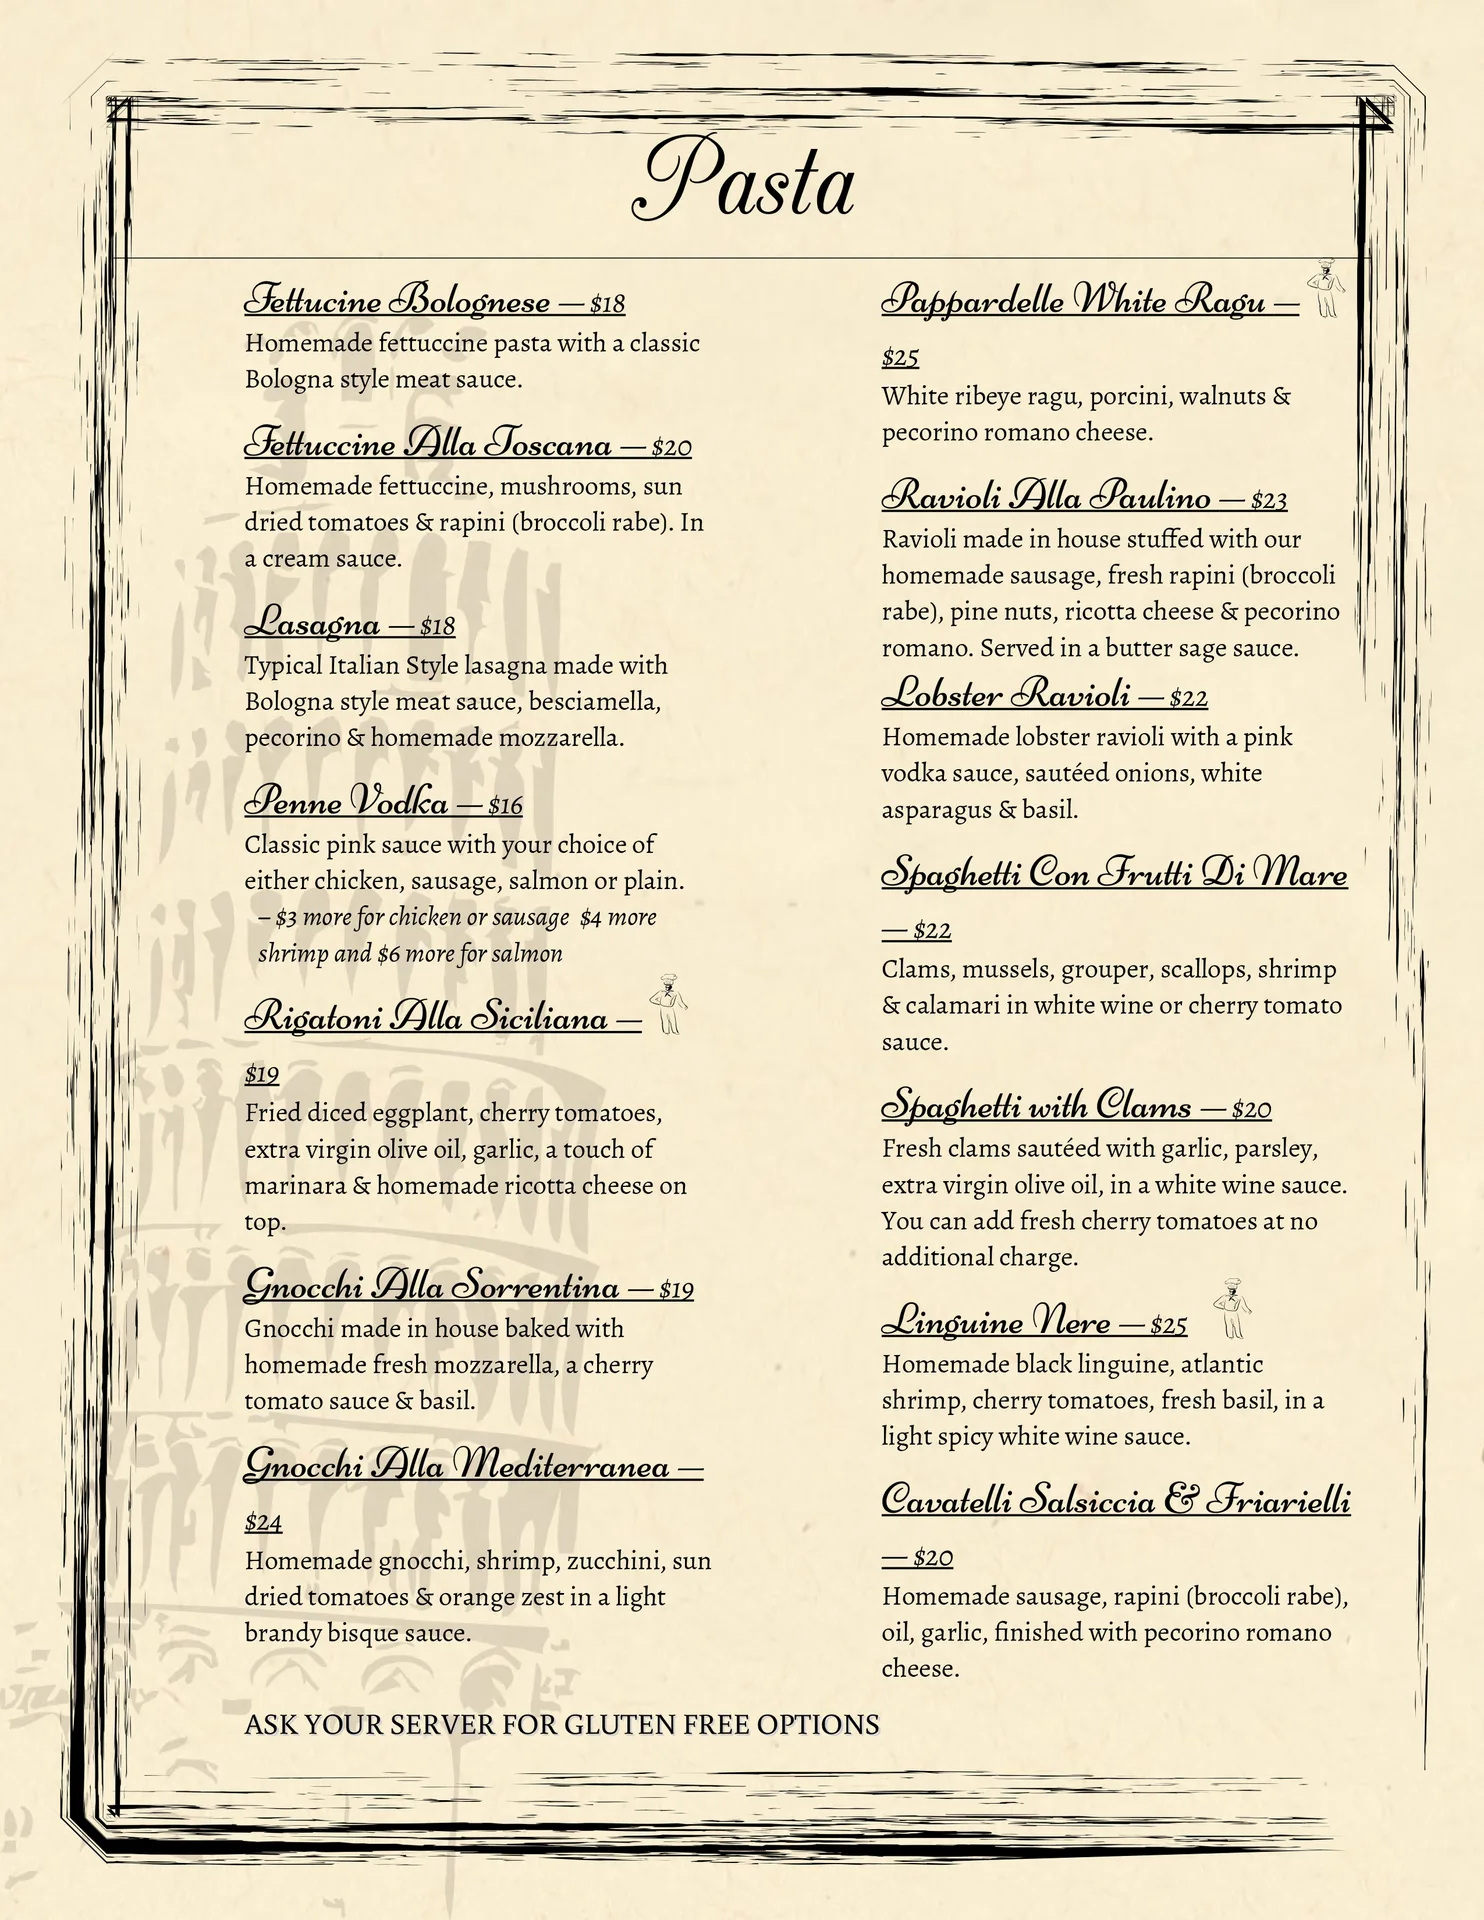 Pasta
Fettucine Bolognese — $18
Homemade fettuccine pasta with a classic
Bologna style meat sauce.
Fettuccine Alla Toscana — $20
Homemade fettuccine, mushrooms, sun
dried tomatoes & rapini (broccoli rabe). In
a cream sauce.
Lasagna — $18
Typical Italian Style lasagna made with
Bologna style meat sauce, besciamella,
pecorino & homemade mozzarella.
Penne Vodka — $16
Classic pink sauce with your choice of
either chicken, sausage, salmon or plain.
– $3 more for chicken or sausage $4 more
shrimp and $6 more for salmon
Rigatoni Alla Siciliana —
$19
Fried diced eggplant, cherry tomatoes,
extra virgin olive oil, garlic, a touch of
marinara & homemade ricotta cheese on
top.
Gnocchi Alla Sorrentina — $19
Gnocchi made in house baked with
homemade fresh mozzarella, a cherry
tomato sauce & basil.
Gnocchi Alla Mediterranea —
$24
Homemade gnocchi, shrimp, zucchini, sun
dried tomatoes & orange zest in a light
brandy bisque sauce.
Pappardelle White Ragu —
$25
White ribeye ragu, porcini, walnuts &
pecorino romano cheese.
Ravioli Alla Paulino — $23
Ravioli made in house stuffed with our
homemade sausage, fresh rapini (broccoli
rabe), pine nuts, ricotta cheese & pecorino
romano. Served in a butter sage sauce.
Lobster Ravioli — $22
Homemade lobster ravioli with a pink
vodka sauce, sautéed onions, white
asparagus & basil.
Spaghetti Con Frutti Di Mare
— $22
Clams, mussels, grouper, scallops, shrimp
& calamari in white wine or cherry tomato
sauce.
Spaghetti with Clams — $20
Fresh clams sautéed with garlic, parsley,
extra virgin olive oil, in a white wine sauce.
You can add fresh cherry tomatoes at no
additional charge.
Linguine Nere — $25
Homemade black linguine, atlantic
shrimp, cherry tomatoes, fresh basil, in a
light spicy white wine sauce.
Cavatelli Salsiccia & Friarielli
— $20
Homemade sausage, rapini (broccoli rabe),
oil, garlic, finished with pecorino romano
cheese.
ASK YOUR SERVER FOR GLUTEN FREE OPTIONS